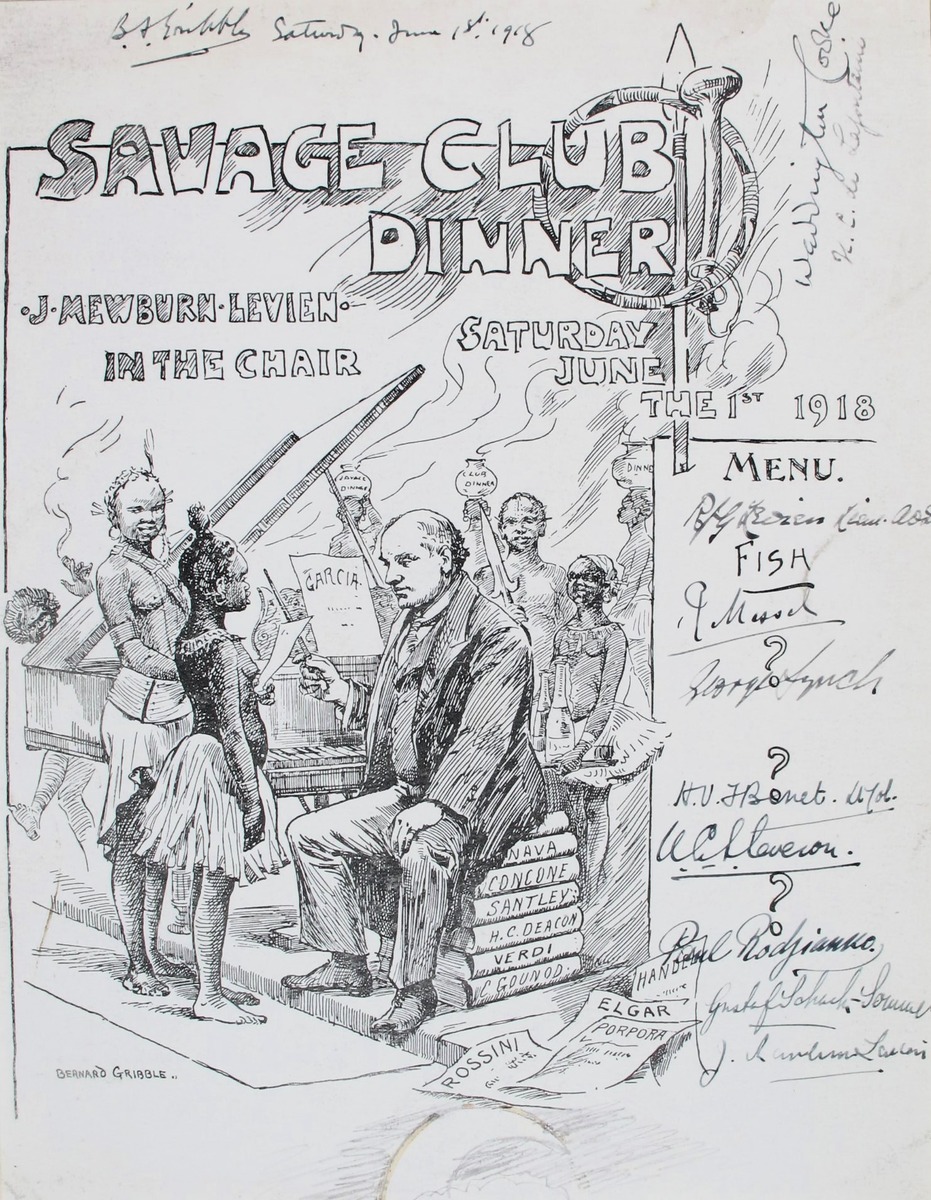 B. F. Gribble Saturday. June 1st. 1918
SAVAGE CLUB
DINNER
·J·MEWBURN·LEVIEN·
IN THE CHAIR
SATURDAY
JUNE
THE 1ST 1918
Waddington Cooke
MENU.
FISH
R Messel
?
George Lynch
?
H. V. F Benet.
?
Paul Rodzianko.
Gustaf Schack-Sommer
J. Mewburn Levien
SAVAGE
DINNER
CLUB
DINNER
DINNE
GARCIA
NAVA
CONCONE
SANTLEY
H. C. DEACON
VERDI
C GOUNOD
HANDEL
ELGAR
PORPORA
ROSSINI
BERNARD GRIBBLE..